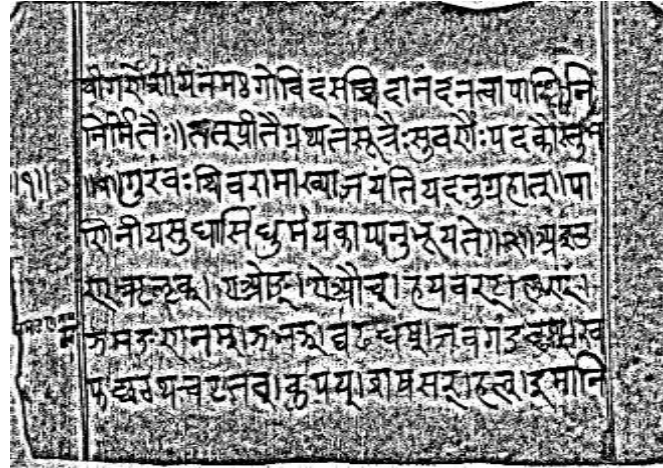 श्रीगणेशायनमः गोविंदसच्चिदानंदनत्वापाणिनि
निर्मितैः॥तत्प्रीतैग्रथ्यतेसूत्रैःसुवर्णैःपदकौस्तुभ
॥१॥गुरवःशिवरामाख्याजयंतियदनुग्रहात्॥पा
णिनीयसुधासिंधुर्मयकाप्यनुभूयते॥२॥अइउ
ण्।ऋऌक्।एओङ्।ऐऔच्।हयवरट्।लण्।
ञमङणनम्।झभञ्।घढधष्।जबगडदश्।ख
फछठथचटतव्।कपय्।शषसर्।हल्।इमानि